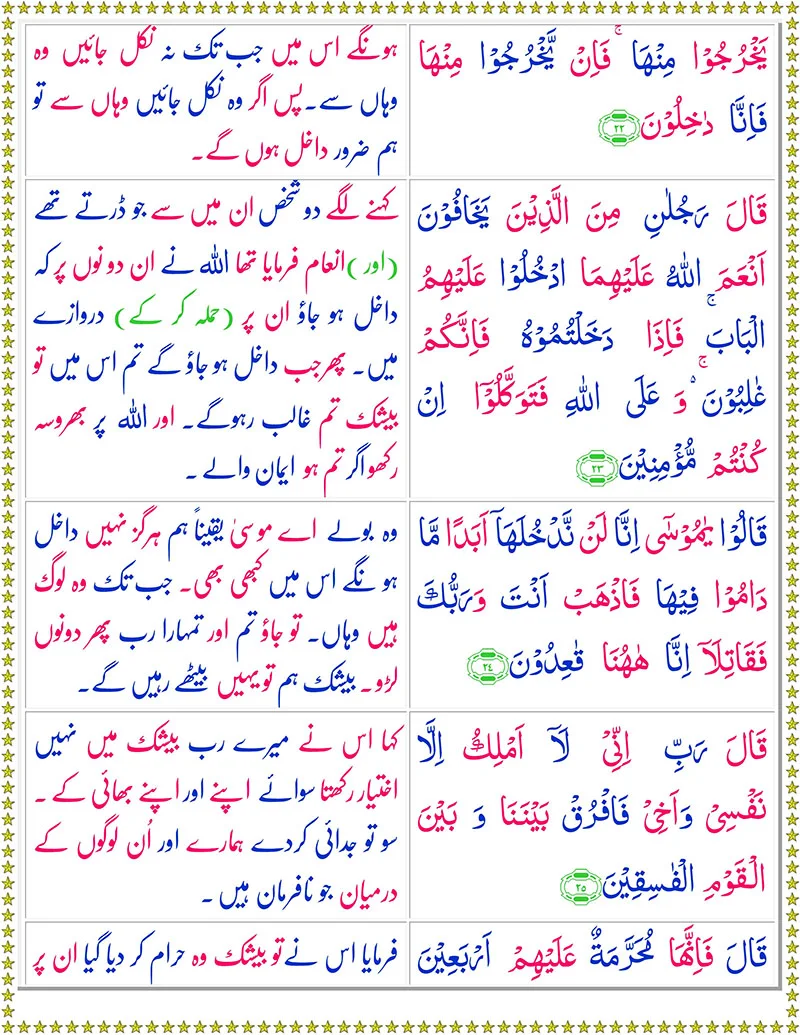 يَّخْرُجُوْا مِنْهَا ۚ فَاِنْ يَّخْرُجُوْا مِنْهَا
فَاِنَّا دٰخِلُوْنَ ﴿۲۲﴾
ہونگے اس میں جب تک نہ نکل جائیں وہ
وہاں سے۔ پس اگر وہ نکل جائیں وہاں سے تو
ہم ضرور داخل ہوں گے۔
قَالَ رَجُلٰنِ مِنَ الَّذِيْنَ يَخَافُوْنَ
اَنْعَمَ اللّٰهُ عَلَيْهِمَا ادْخُلُوْا عَلَيْهِمُ
الْبَابَ ۚ فَاِذَا دَخَلْتُمُوْهُ فَاِنَّكُمْ
غٰلِبُوْنَ ۬ۚ وَ عَلَى اللّٰهِ فَتَوَكَّلُوْٓا اِنْ
كُنْتُمْ مُّؤْمِنِيْنَ ﴿۲۳﴾
کہنے لگے دو شخص ان میں سے جو ڈرتے تھے
(اور) انعام فرمایا تھا اللہ نے ان دونوں پر کہ
داخل ہو جاؤ ان پر (حملہ کر کے) دروازے
میں۔ پھر جب داخل ہو جاؤ گے تم اس میں تو
بیشک تم غالب رہو گے۔ اور اللہ پر بھروسہ
رکھو اگر تم ہو ایمان والے۔
قَالُوْا يٰمُوْسٰٓى اِنَّا لَنْ نَّدْخُلَهَاۤ اَبَدًا مَّا
دَامُوْا فِيْهَا فَاذْهَبْ اَنْتَ وَرَبُّكَ
فَقَاتِلَاۤ اِنَّا هٰهُنَا قٰعِدُوْنَ ﴿۲۴﴾
وہ بولے اے موسیٰ یقیناً ہم ہرگز نہیں داخل
ہونگے اس میں کبھی بھی۔ جب تک وہ لوگ
ہیں وہاں۔ تو جاؤ تم اور تمہارا رب پھر دونوں
لڑو۔ بیشک ہم تو یہیں بیٹھے رہیں گے۔
قَالَ رَبِّ اِنِّىْ لَاۤ اَمْلِكُ اِلَّا
نَفْسِىْ وَاَخِىْ فَافْرُقْ بَيْنَنَا وَ بَيْنَ
الْقَوْمِ الْفٰسِقِيْنَ ﴿۲۵﴾
کہا اس نے میرے رب بیشک میں نہیں
اختیار رکھتا سوائے اپنے اور اپنے بھائی کے۔
سو تو جدائی کردے ہمارے اور اُن لوگوں کے
درمیان جو نافرمان ہیں۔
قَالَ فَاِنَّهَا مُحَرَّمَةٌ عَلَيْهِمْ اَرْبَعِيْنَ
فرمایا اس نے تو بیشک وہ حرام کر دیا گیا ان پر